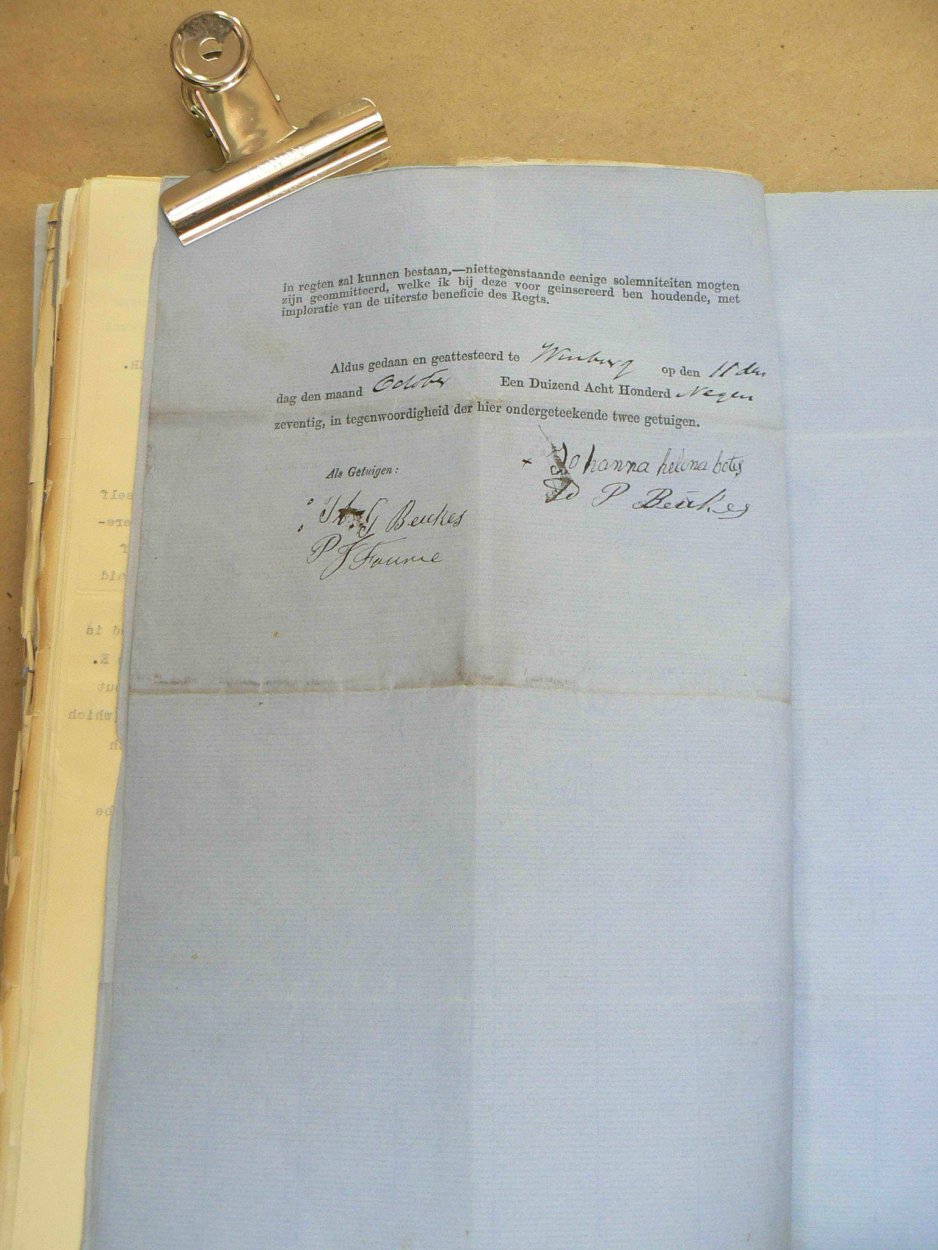 in regten zal kunnen bestaan,—niettegenstaande eenige solemniteiten mogten
zijn geommitteerd, welke ik bij deze voor geinsereerd ben houdende, met
imploratie van de uiterste beneficie des Regts.
Aldus gedaan en geattesteerd te Winburg op den 11 den
dag den maand October Een Duizend Acht Honderd Negen
zeventig, in tegenwoordigheid der hier ondergeteekende twee getuigen.
Als Getuigen:
Johanna helena botes
P Beukes
G Beukes
P J Fourie